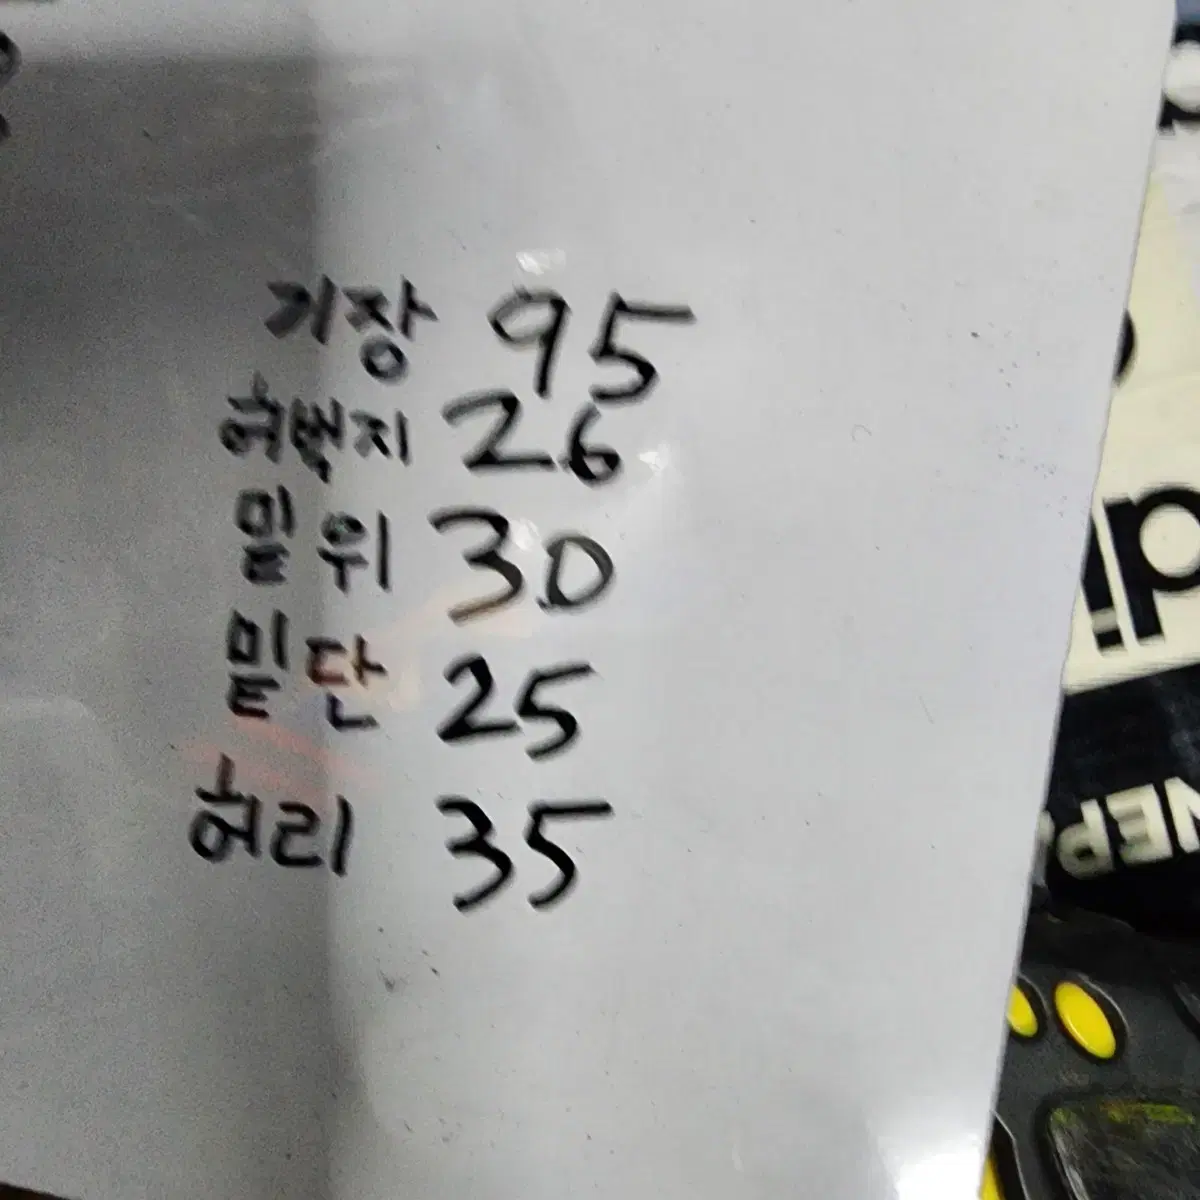 기장 95
허벅지 26
밑위 30
밑단 25
허리 35